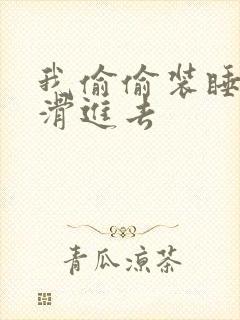 我偷偷装睡
滑進去
青瓜凉茶